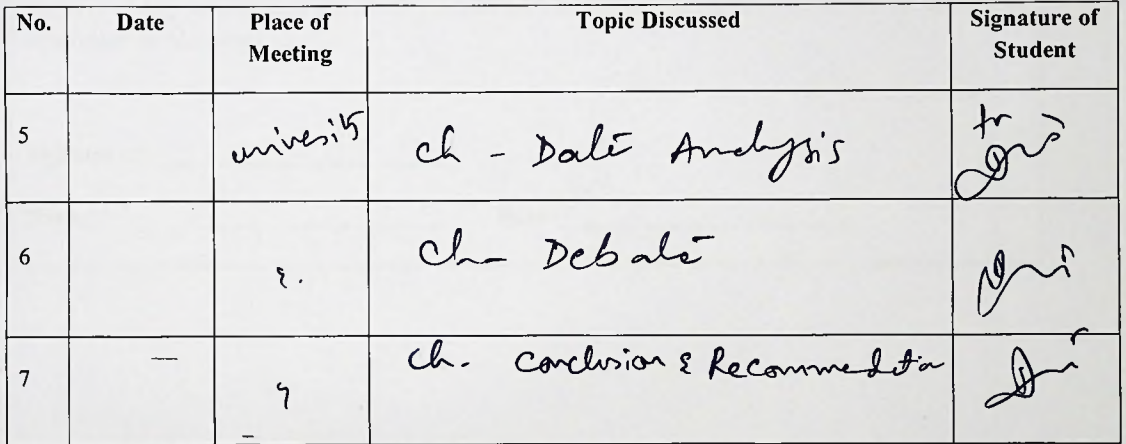 No. Date Place of Meeting Topic Discussed Signature of Student
5 univesity ch - Data Analysis
6 ch - Debate
7 ch. Conclusion & Recommedation